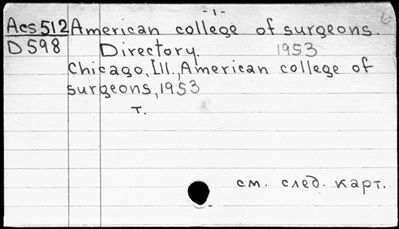 -1-
Acs512 American college of surgeons.
D598 Directory. 1953
Chicago, Ill., American college of
surgeons, 1953
т.
см. след. карт.